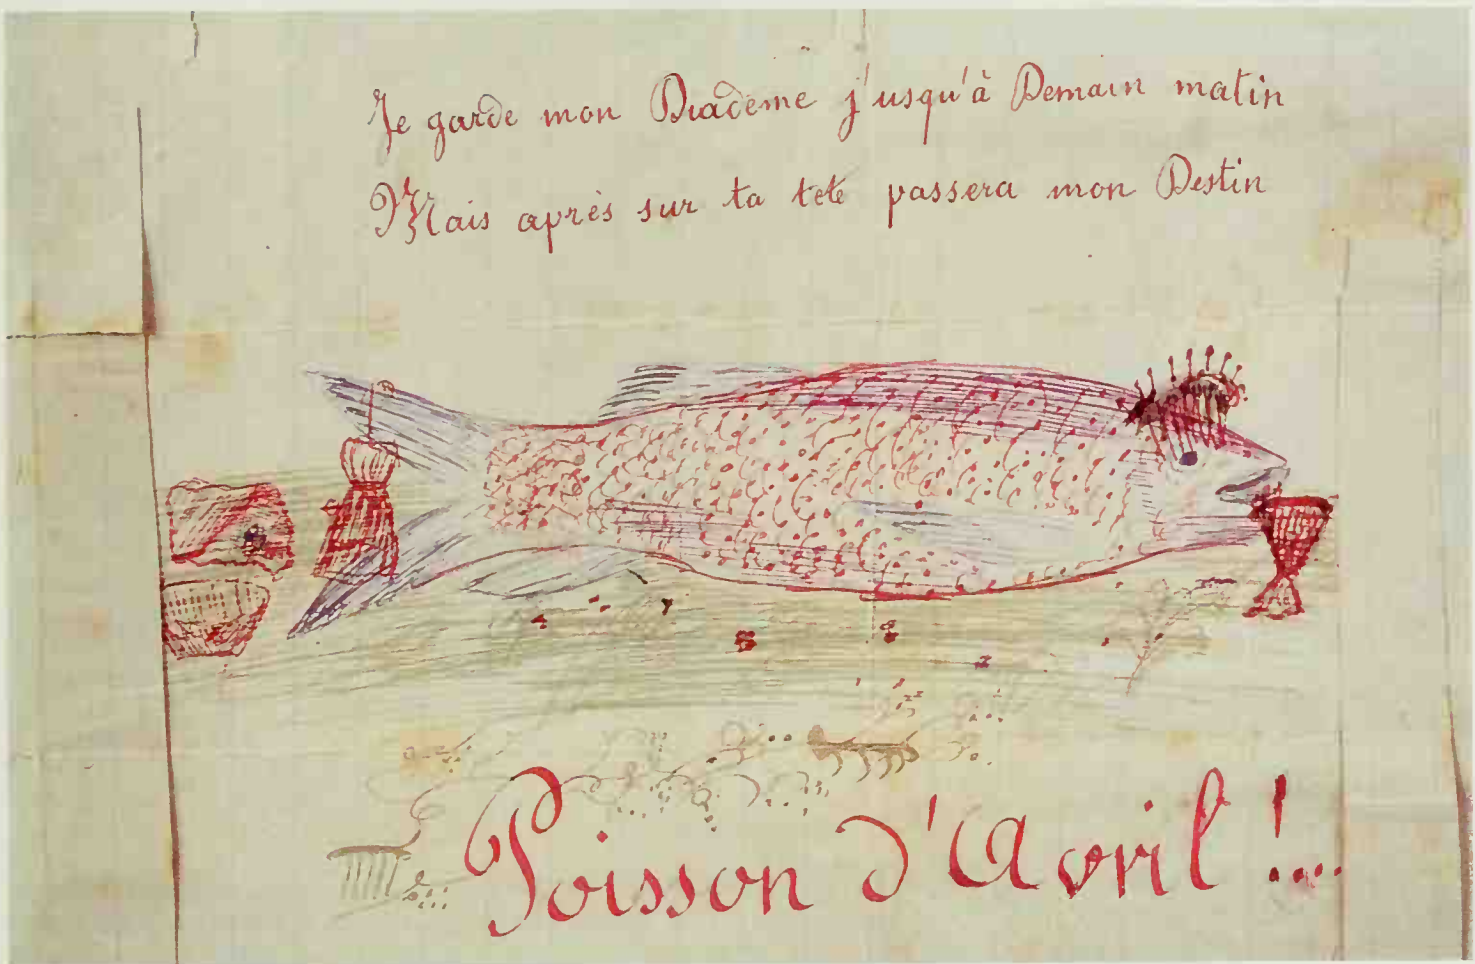 Je garde mon Diadème j'usqu'à Demain matin
Mais après sur ta tete passera mon Destin
Poisson d'Avril !...